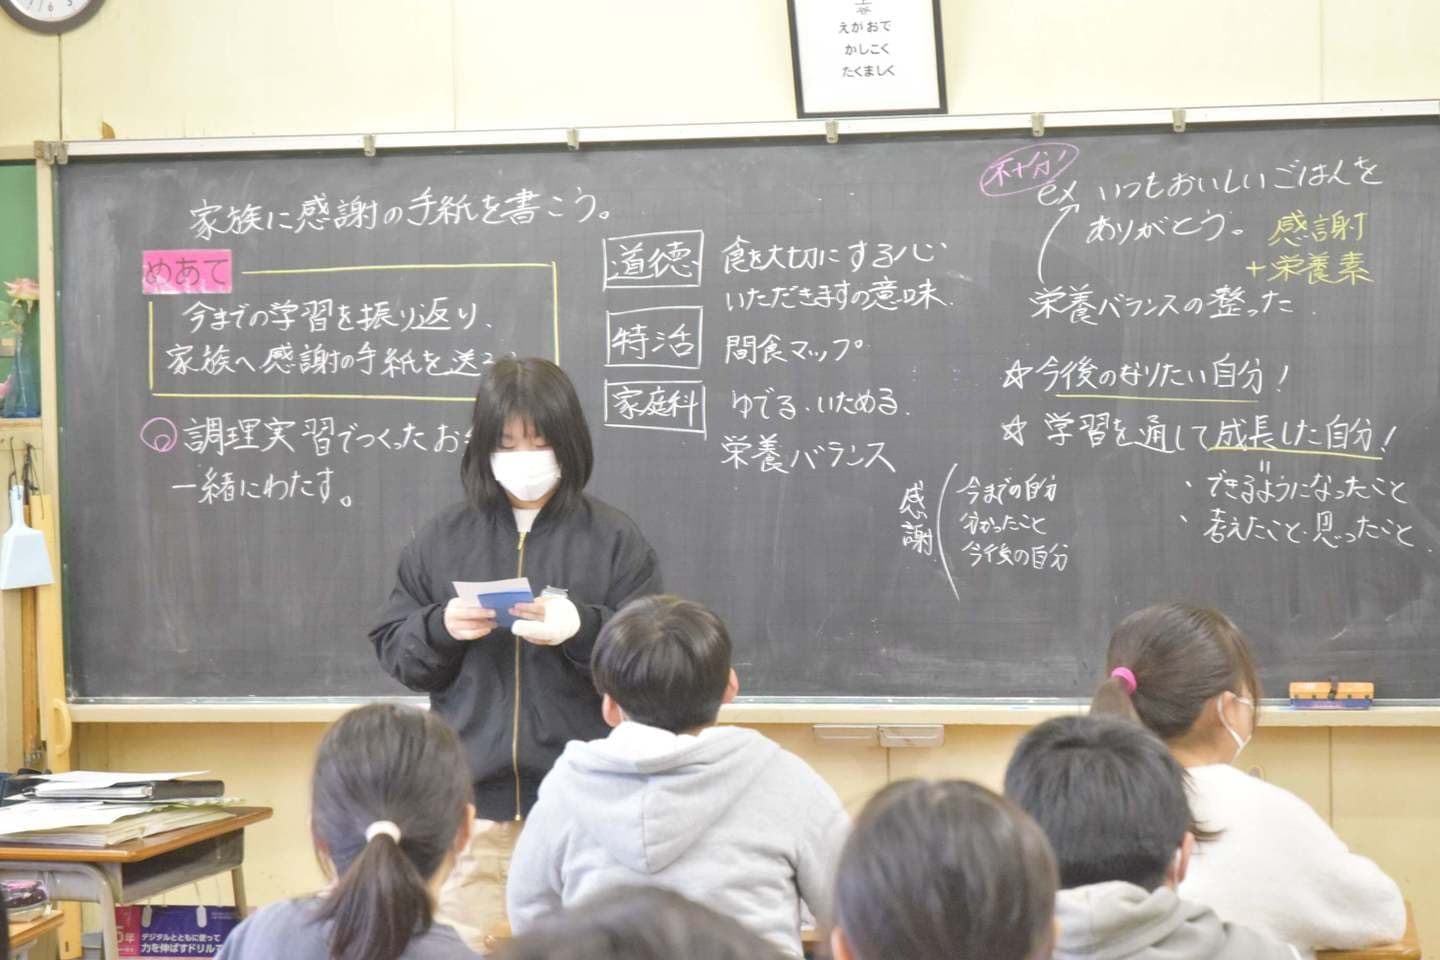 えがおで
かしこく
たくましく
家族に感謝の手紙を書こう。
めあて
今までの学習を振り返り、
家族へ感謝の手紙を送
調理実習でつくったお
一緒にわたす。
道徳
食を大切にする心
いただきますの意味.
特活
間食マップ
家庭科
ゆでる・いためる.
栄養バランス
不十分!
ex いつもおいしいごはんを
ありがとう。
感謝
+栄養素
栄養バランスの整った
☆今後のなりたい自分!
☆ 学習を通して成長した自分!
・できるようになったこと
・考えたこと・思ったこと
感謝
今までの自分
分かったこと
今後の自分
5年
デジタルとともに使って
力を伸ばすドリル